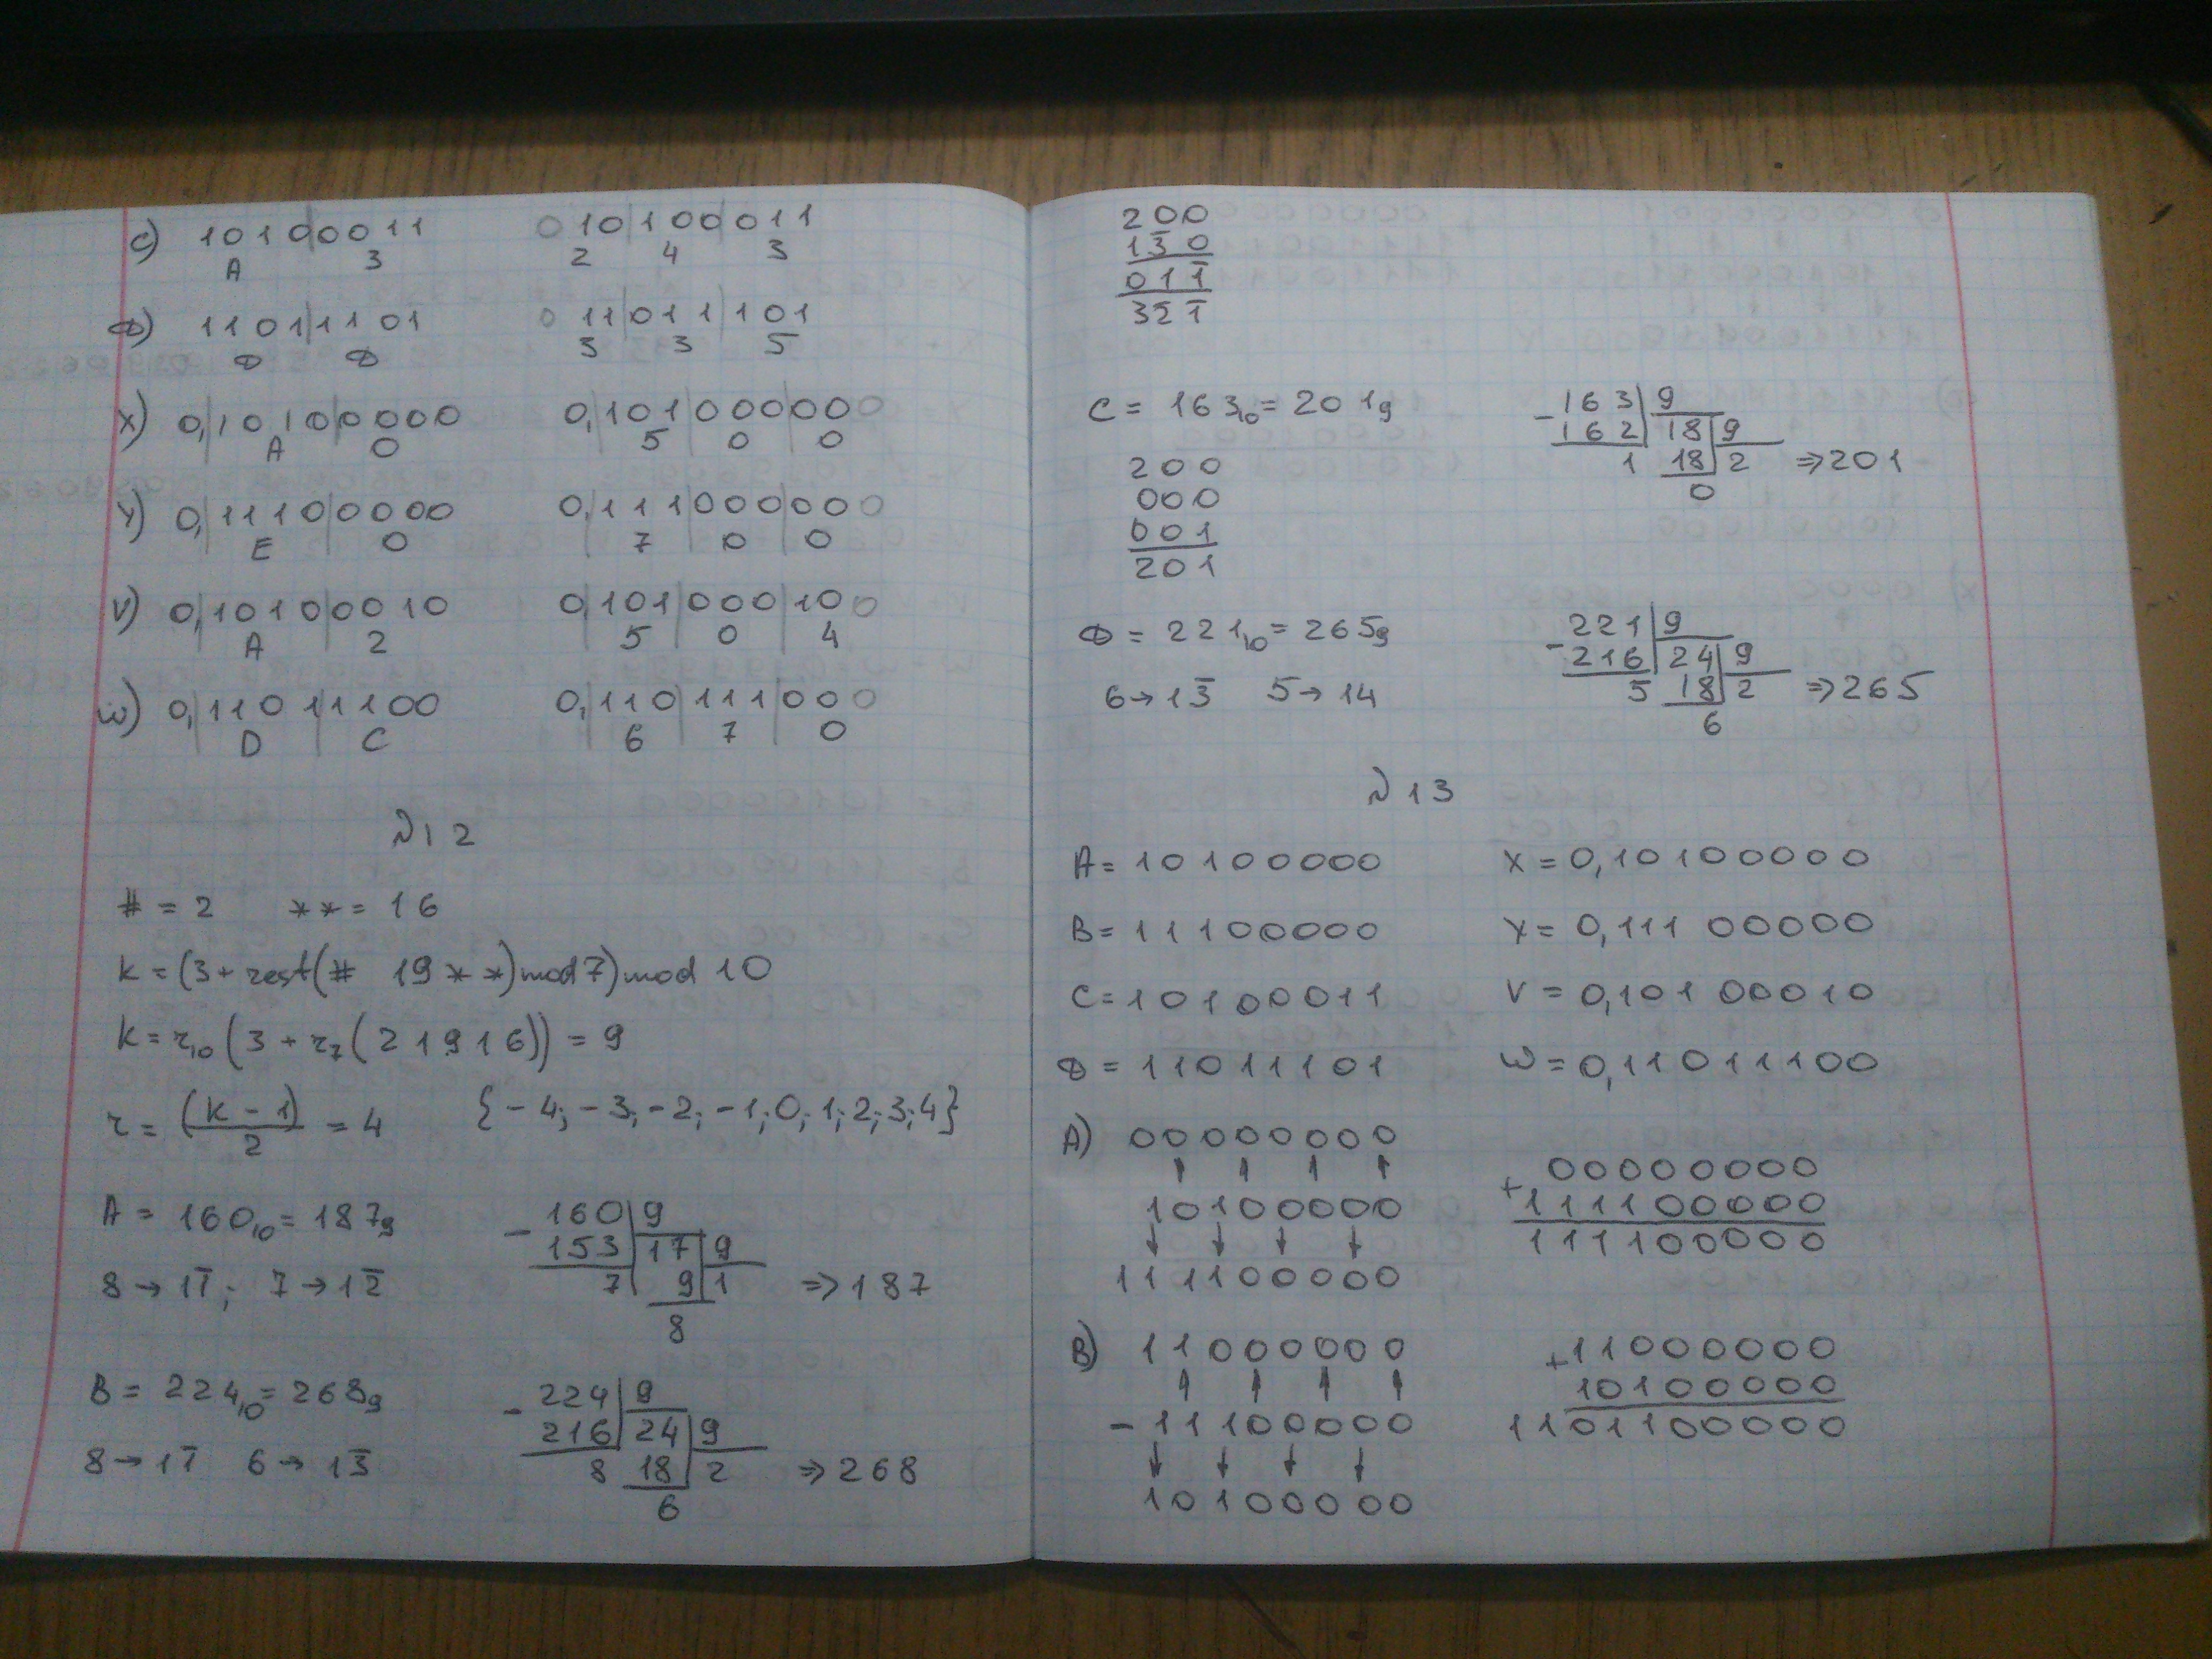 C) 10100011 010100011
A 3 2 4 3
D) 11011101 011011101
D D 3 3 5
X) 0,10100000 0,101000000
A 0 5 0 0
Y) 0,11100000 0,111000000
E 0 7 0 0
V) 0,10100010 0,101000100
A 2 5 0 4
W) 0,11011100 0,110111000
D C 6 7 0
№12
# = 2 ** = 16
k = (3 + rest(# 19**) mod 7) mod 10
k = r₁₀(3 + r₇(21916)) = 9
r = (k - 1)/2 = 4 {-4; -3; -2; -1; 0; 1; 2; 3; 4}
A = 160₁₀ = 187₉ - 160 | 9
153 | 17 | 9
8 → 11̄; 7 → 12̄ 7 9 | 1 ⇒ 187
8
B = 224₁₀ = 268₉ - 224 | 9
216 | 24 | 9
8 → 11̄ 6 → 13̄ 8 18 | 2 ⇒ 268
6
200
13̄0
011̄
32̄1̄
C = 163₁₀ = 201₉ - 163 | 9
162 | 18 | 9
200 1 18 | 2 ⇒ 201
000 0
001
201
D = 221₁₀ = 265₉ - 221 | 9
216 | 24 | 9
6 → 13̄ 5 → 14 5 18 | 2 ⇒ 265
6
№13
A = 10100000 X = 0,10100000
B = 11100000 Y = 0,11100000
C = 10100011 V = 0,10100010
D = 11011101 W = 0,11011100
A) 00000000 00000000
↑ ↑ ↑ ↑ + 111100000
10100000 111100000
↓ ↓ ↓ ↓
111100000
B) 11000000 + 11000000
↑ ↑ ↑ ↑ 10100000
- 11100000 1101100000
↓ ↓ ↓ ↓
10100000